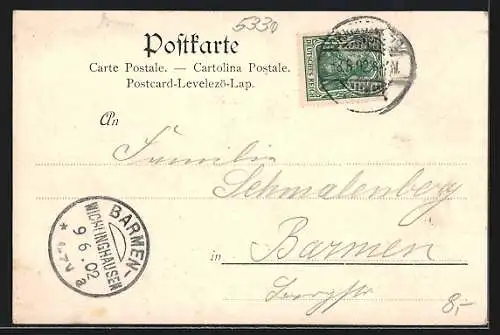 5330
Postkarte
Carte Postale. — Cartolina Postale.
Postcard-Levelező-Lap.
DEUTSCHES REICH
An
Familie
Schmalenberg
in Barmen
BARMEN-
WICHLINGHAUSEN
9.6.02
8,-